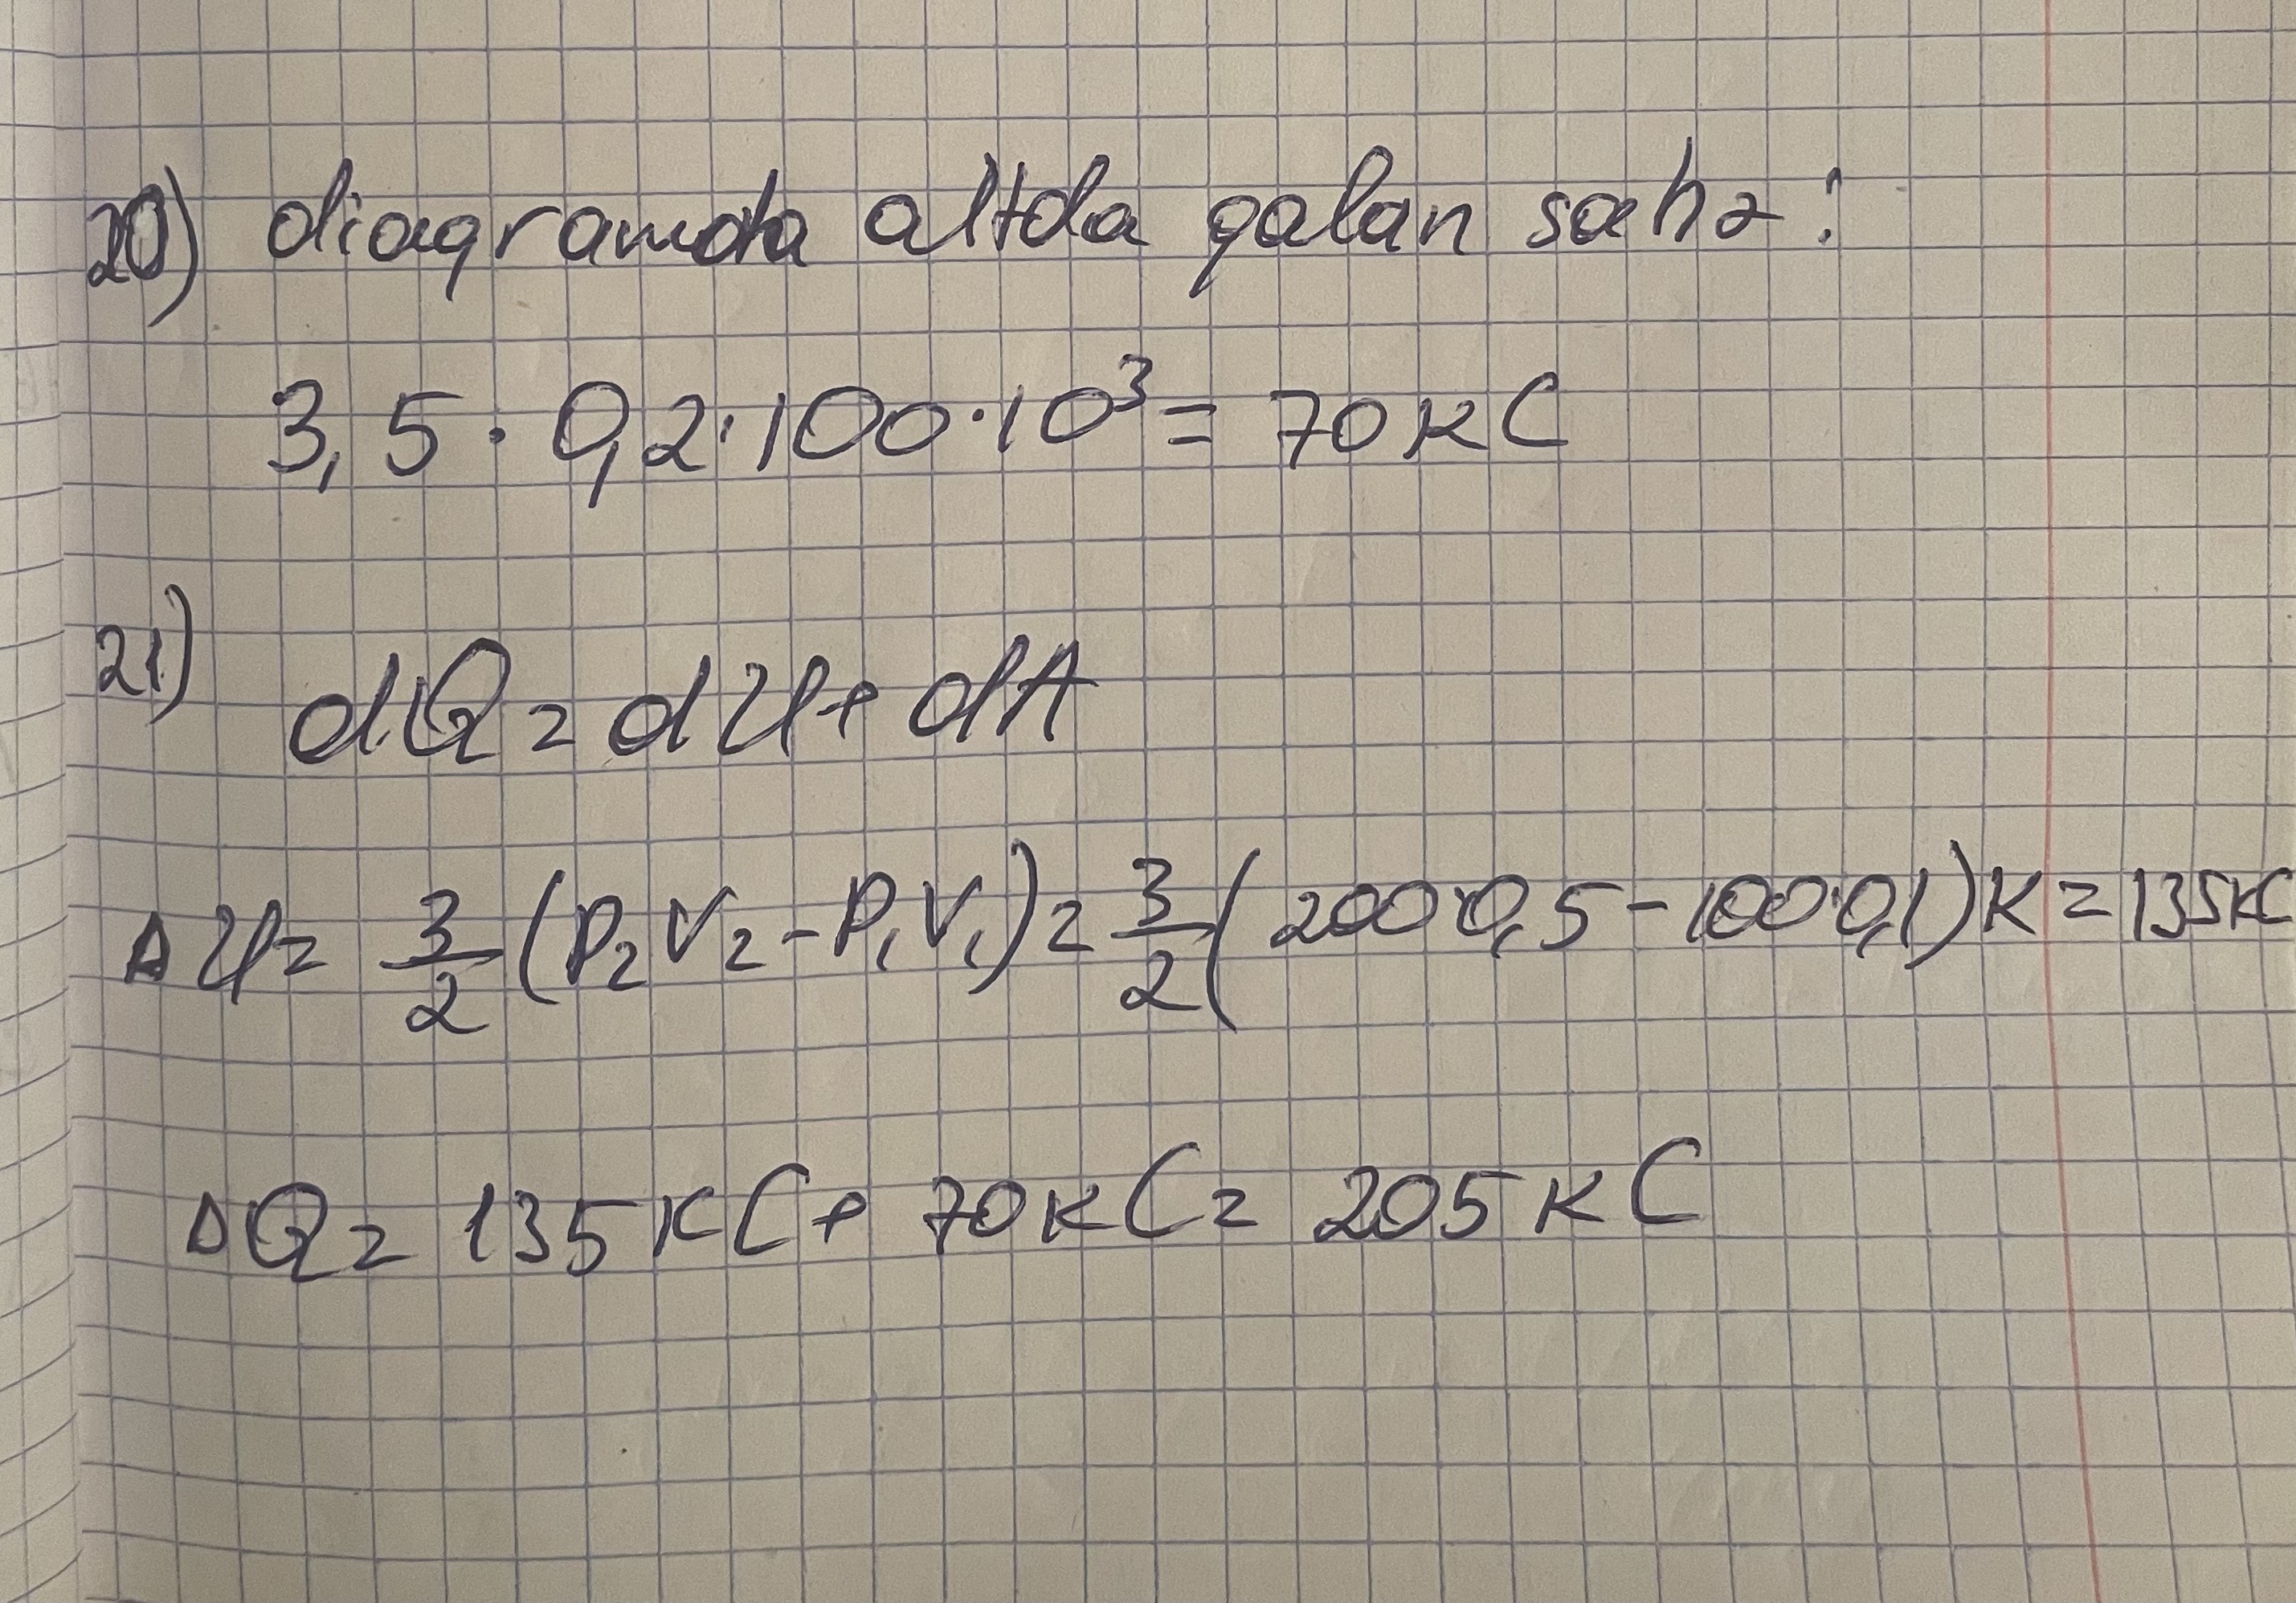 20) diaqramda altda qalan sahə:
3,5 · 0,2 · 100 · 10³ = 70 kC
21) dQ = dU + dA
ΔU = 3/2 (P₂V₂ - P₁V₁) = 3/2 (200·0,5 - 100·0,1) k = 135 kC
ΔQ = 135 kC + 70 kC = 205 kC